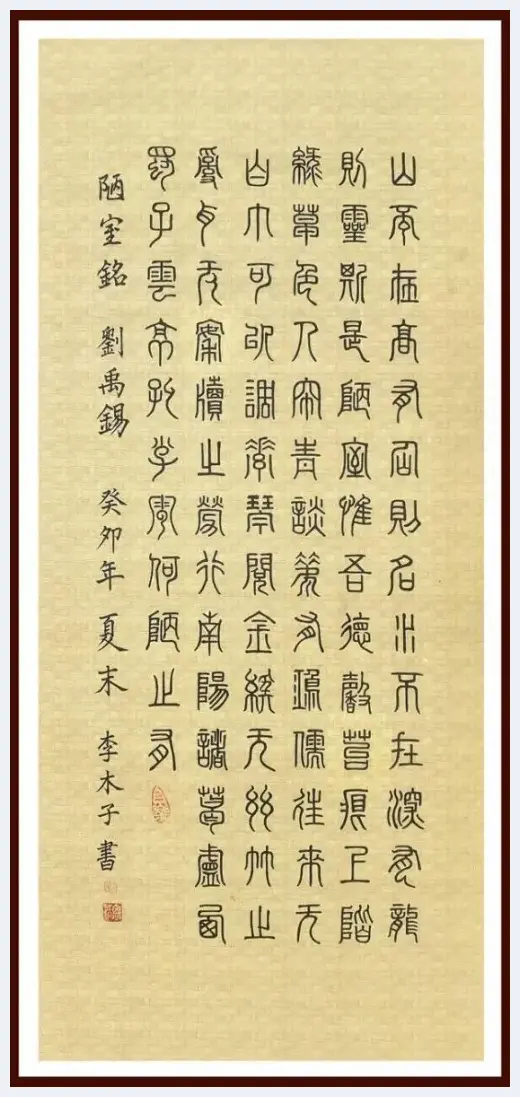 山不在高有仙則名水不在深有龍
則靈斯是陋室惟吾德馨苔痕上階
綠草色入簾青談笑有鴻儒往來无
白丁可以調素琴閱金經无絲竹之
亂耳无案牘之勞形南陽諸葛廬西
蜀子雲亭孔子云何陋之有
陋室銘 劉禹錫 癸卯年夏末 李木子書